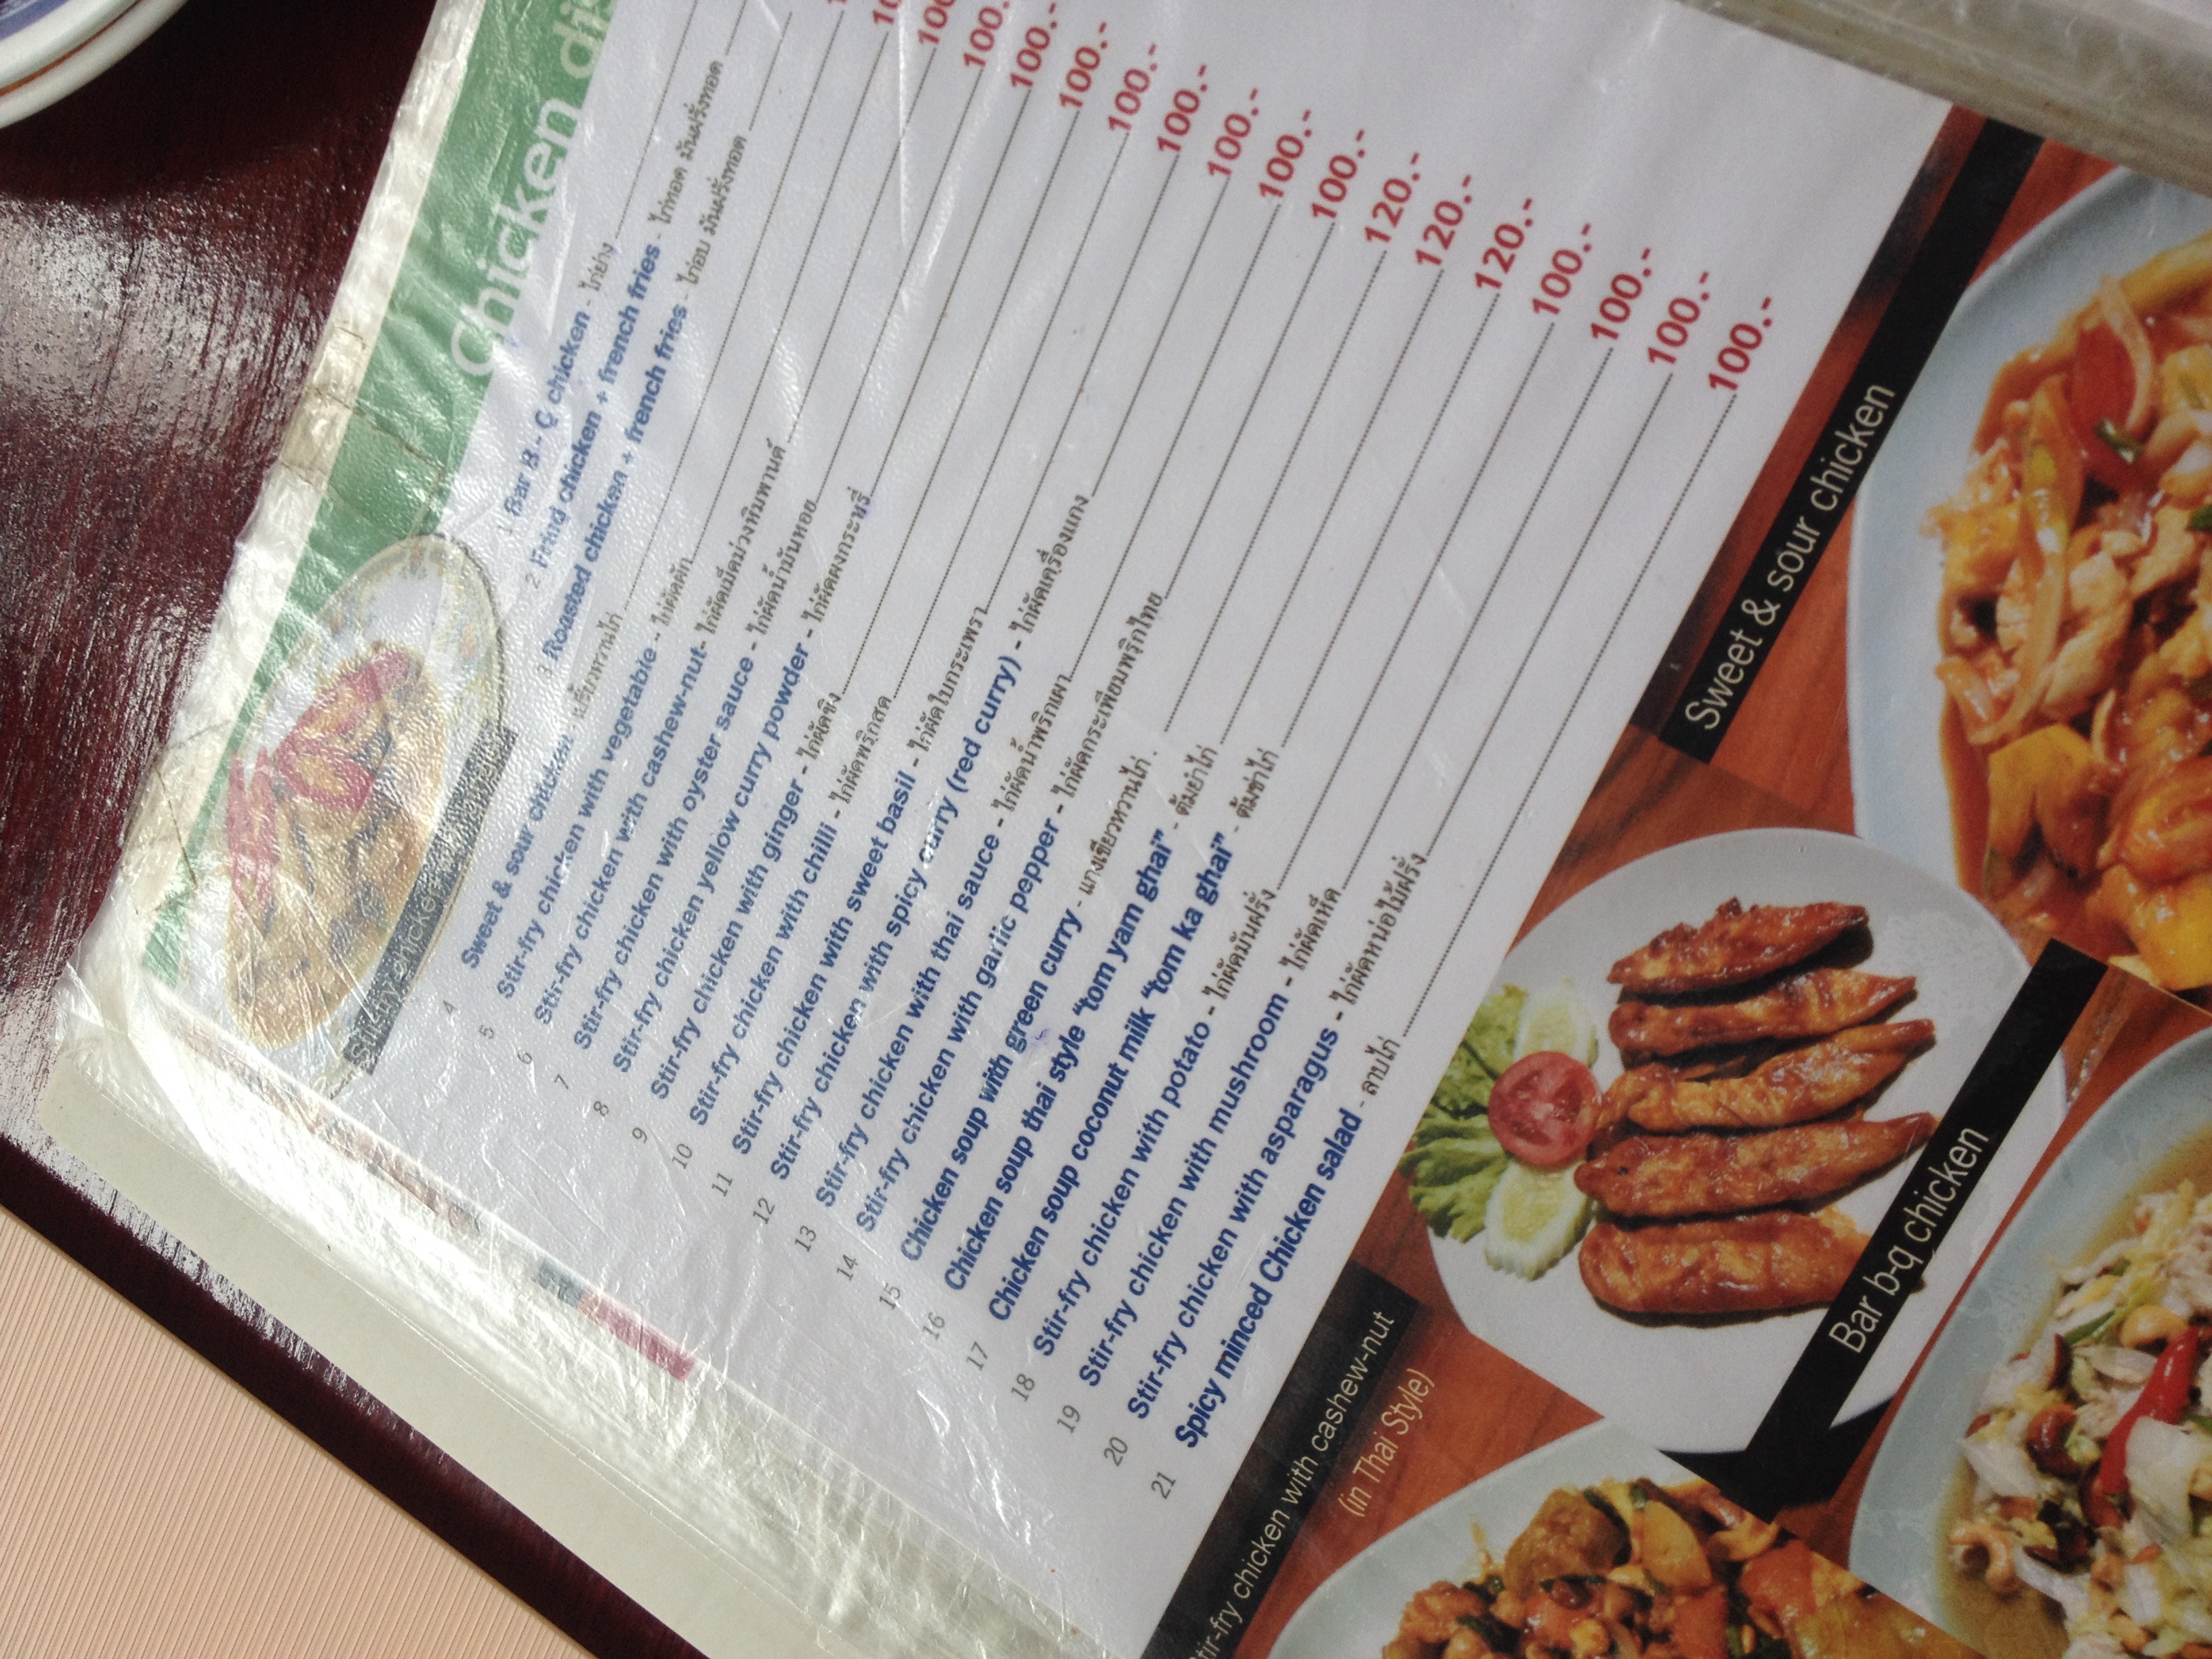 Chicken dis
1 Bar B - Q chicken - ไก่ย่าง
2 Fried chicken + french fries - ไก่ทอด มันฝรั่งทอด
3 Roasted chicken + french fries - ไก่อบ มันฝรั่งทอด
4 Sweet & sour chicken - เปรี้ยวหวานไก่
5 Stir-fry chicken with vegetable - ไก่ผัดผัก
6 Stir-fry chicken with cashew-nut- ไก่ผัดเม็ดม่วงหิมพานต์ 100
7 Stir-fry chicken with oyster sauce - ไก่ผัดน้ำมันหอย 100.
8 Stir-fry chicken yellow curry powder - ไก่ผัดผงกระหรี่ 100.-
9 Stir-fry chicken with ginger - ไก่ผัดขิง 100.-
10 Stir-fry chicken with chilli - ไก่ผัดพริกสด 100.-
11 Stir-fry chicken with sweet basil - ไก่ผัดใบกระเพรา 100.-
12 Stir-fry chicken with spicy curry (red curry) - ไก่ผัดเครื่องแกง 100.-
13 Stir-fry chicken with thai sauce - ไก่ผัดน้ำพริกเผา 100.-
14 Stir-fry chicken with garlic pepper - ไก่ผัดกระเทียมพริกไทย 100.-
15 Chicken soup with green curry - แกงเขียวหวานไก่ 120.-
16 Chicken soup thai style "tom yam ghai" - ต้มยำไก่ 120.-
17 Chicken soup coconut milk "tom ka ghai" - ต้มข่าไก่ 120.-
18 Stir-fry chicken with potato - ไก่ผัดมันฝรั่ง 100.-
19 Stir-fry chicken with mushroom - ไก่ผัดเห็ด 100.-
20 Stir-fry chicken with asparagus - ไก่ผัดหน่อไม้ฝรั่ง 100.-
21 Spicy minced Chicken salad - ลาบไก่ 100.-
Stir-fry chicken
Sweet & sour chicken
Bar b-q chicken
Stir-fry chicken with cashew-nut
(in Thai Style)